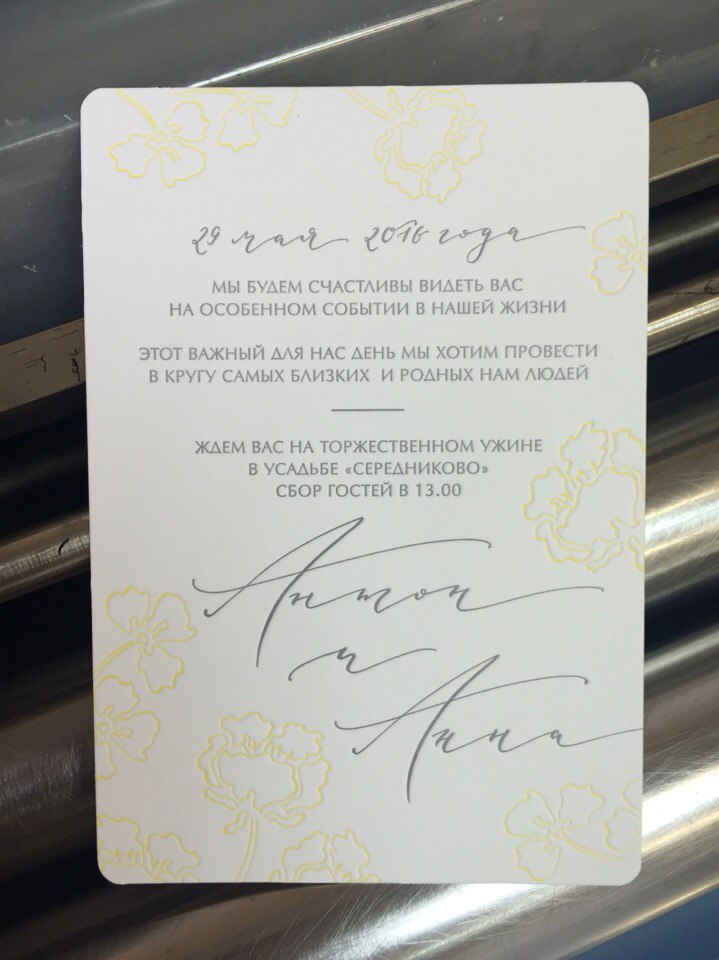 29 мая 2016 года
МЫ БУДЕМ СЧАСТЛИВЫ ВИДЕТЬ ВАС
НА ОСОБЕННОМ СОБЫТИИ В НАШЕЙ ЖИЗНИ
ЭТОТ ВАЖНЫЙ ДЛЯ НАС ДЕНЬ МЫ ХОТИМ ПРОВЕСТИ
В КРУГУ САМЫХ БЛИЗКИХ И РОДНЫХ НАМ ЛЮДЕЙ
ЖДЕМ ВАС НА ТОРЖЕСТВЕННОМ УЖИНЕ
В УСАДЬБЕ «СЕРЕДНИКОВО»
СБОР ГОСТЕЙ В 13.00
Антон
и
Анна